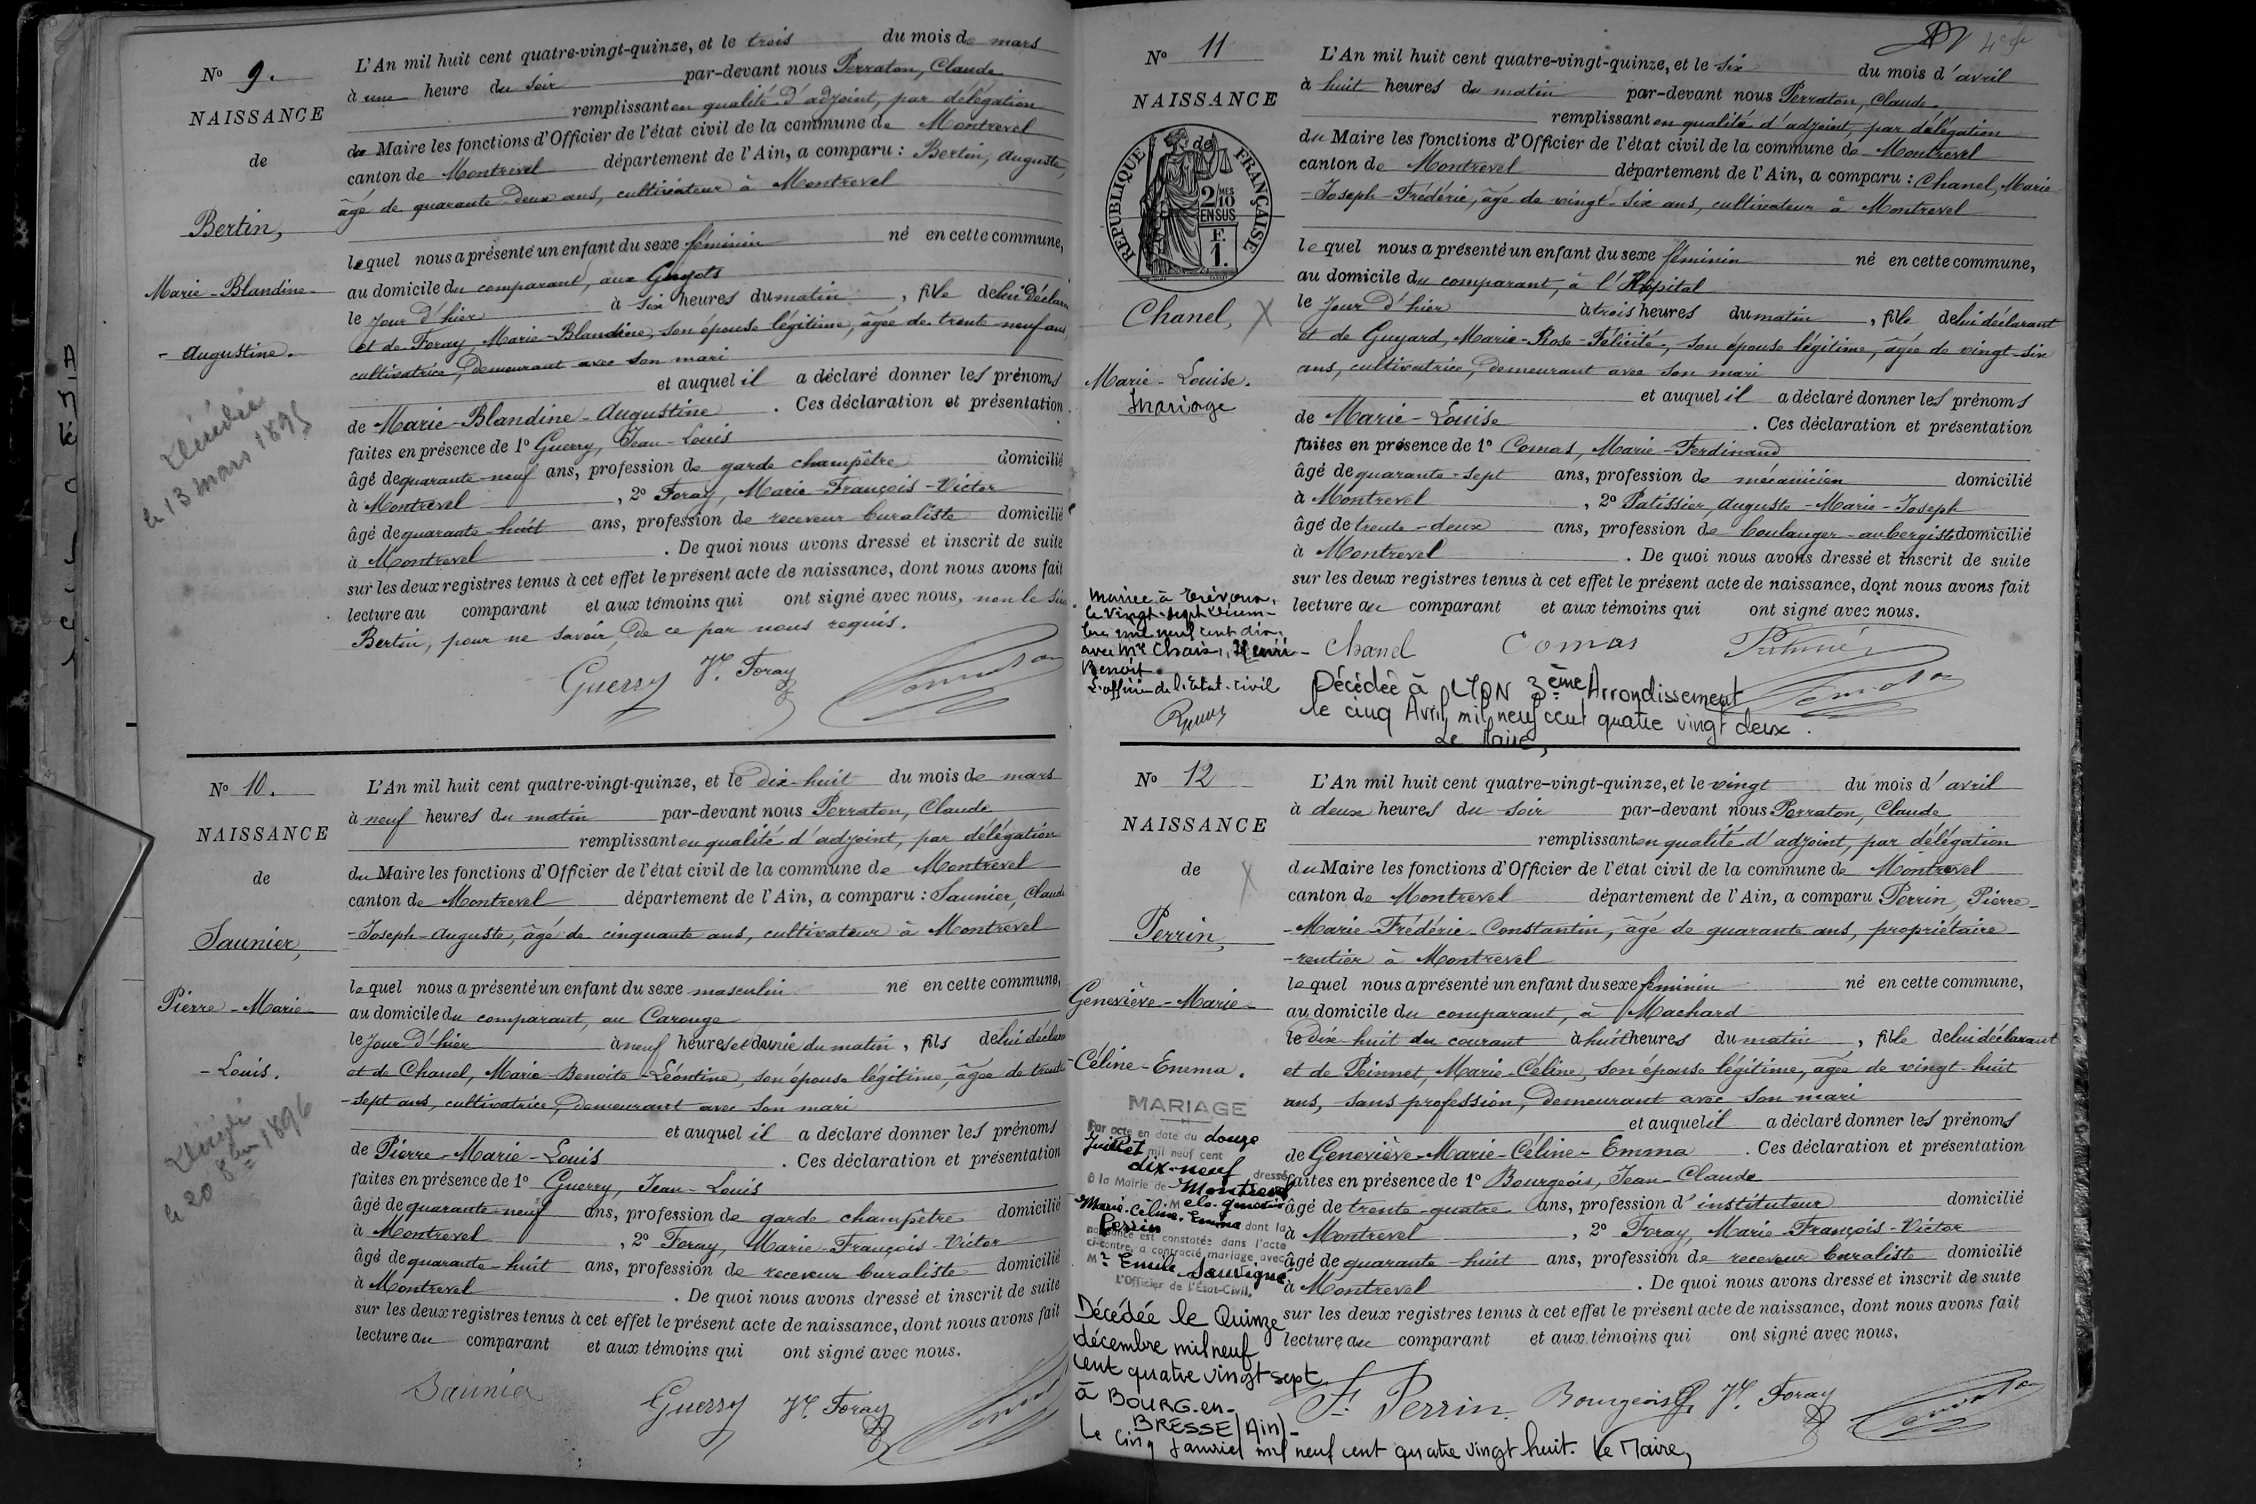 N° 9.
NAISSANCE
de
Bertin,
Marie-Blandine-
-Augustine.
Décédée
le 13 mars 1895
L'An mil huit cent quatre-vingt-quinze, et le trois du mois de mars
à une heure du soir par-devant nous Perraton, Claude
remplissant en qualité d'adjoint, par délégation
du Maire les fonctions d'Officier de l'état civil de la commune de Montrevel
canton de Montrevel département de l'Ain, a comparu : Bertin, Auguste,
âgé de quarante deux ans, cultivateur à Montrevel
lequel nous a présenté un enfant du sexe féminin né en cette commune,
au domicile du comparant, aux Guyots
le jour d'hier à six heures du matin, fille de lui déclarant
et de Foray, Marie-Blandine, son épouse légitime, âgée de trente-neuf ans,
cultivatrice, demeurant avec son mari
et auquel il a déclaré donner les prénoms
de Marie-Blandine-Augustine. Ces déclaration et présentation
faites en présence de 1° Guerry, Jean-Louis
âgé de quarante-neuf ans, profession de garde champêtre domicilié
à Montrevel, 2° Foray, Marie-François-Victor
âgé de quarante-huit ans, profession de receveur buraliste domicilié
à Montrevel. De quoi nous avons dressé et inscrit de suite
sur les deux registres tenus à cet effet le présent acte de naissance, dont nous avons fait
lecture au comparant et aux témoins qui ont signé avec nous, non le sieur
Bertin, pour ne savoir, de ce par nous requis.
Guerry Vr. Foray
N° 10.
NAISSANCE
de
Saunier,
Pierre-Marie-
-Louis.
Décédé
le 20 8bre 1896
L'An mil huit cent quatre-vingt-quinze, et le dix-huit du mois de mars
à neuf heures du matin par-devant nous Perraton, Claude
remplissant en qualité d'adjoint, par délégation
du Maire les fonctions d'Officier de l'état civil de la commune de Montrevel
canton de Montrevel département de l'Ain, a comparu : Saunier, Claude
-Joseph-Auguste, âgé de cinquante ans, cultivateur à Montrevel
lequel nous a présenté un enfant du sexe masculin né en cette commune,
au domicile du comparant, au Carouge
le jour d'hier à neuf heures et demie du matin, fils de lui déclarant
et de Chanel, Marie-Benoite-Léontine, son épouse légitime, âgée de trente
-sept ans, cultivatrice, demeurant avec son mari
et auquel il a déclaré donner les prénoms
de Pierre-Marie-Louis. Ces déclaration et présentation
faites en présence de 1° Guerry, Jean-Louis
âgé de quarante-neuf ans, profession de garde champêtre domicilié
à Montrevel, 2° Foray, Marie-François-Victor
âgé de quarante-huit ans, profession de receveur buraliste domicilié
à Montrevel. De quoi nous avons dressé et inscrit de suite
sur les deux registres tenus à cet effet le présent acte de naissance, dont nous avons fait
lecture au comparant et aux témoins qui ont signé avec nous.
Saunier Guerry Vr. Foray
N° 11
NAISSANCE
de
RÉPUBLIQUE FRANÇAISE
2/10 MES
EN SUS
F.
1.
Chanel,
Marie-Louise.
Mariage
Mariée à Trévoux,
le vingt-sept décem-
bre mil neuf cent dix,
avec Mr Chais, Henri-
Benoit.
L'officier de l'Etat-civil
L'An mil huit cent quatre-vingt-quinze, et le six du mois d'avril
à huit heures du matin par-devant nous Perraton, Claude
remplissant en qualité d'adjoint, par délégation
du Maire les fonctions d'Officier de l'état civil de la commune de Montrevel
canton de Montrevel département de l'Ain, a comparu : Chanel, Marie
-Joseph-Frédéric, âgé de vingt-six ans, cultivateur à Montrevel
lequel nous a présenté un enfant du sexe féminin né en cette commune,
au domicile du comparant, à l'Hôpital
le jour d'hier à trois heures du matin, fille de lui déclarant
et de Guyard, Marie-Rose-Félicité, son épouse légitime, âgée de vingt-six
ans, cultivatrice, demeurant avec son mari
et auquel il a déclaré donner les prénoms
de Marie-Louise. Ces déclaration et présentation
faites en présence de 1° Comas, Marie-Ferdinand
âgé de quarante-sept ans, profession de mécanicien domicilié
à Montrevel, 2° Patissier, Auguste-Marie-Joseph
âgé de trente-deux ans, profession de boulanger-aubergiste domicilié
à Montrevel. De quoi nous avons dressé et inscrit de suite
sur les deux registres tenus à cet effet le présent acte de naissance, dont nous avons fait
lecture au comparant et aux témoins qui ont signé avec nous.
Chanel Comas
Décédée à LYON 3ème Arrondissement
le cinq Avril mil neuf cent quatre vingt deux.
Le Maire,
N° 12
NAISSANCE
de
Perrin,
Geneviève-Marie-
-Céline-Emma.
MARIAGE
Par acte en date du douze
Juillet mil neuf cent
dix-neuf dressé
à la Mairie de Montrevel
Marie-Céline-Emma
Perrin dont la
naissance est constatée dans l'acte
ci-contre, a contracté mariage avec
Mr Emile Sauvigné
L'Officier de l'État-Civil,
Décédée le Quinze
décembre mil neuf
cent quatre vingt sept
à BOURG-en-
BRESSE (Ain)-
Le cinq Janvier mil neuf cent quatre vingt huit. Le Maire,
L'An mil huit cent quatre-vingt-quinze, et le vingt du mois d'avril
à deux heures du soir par-devant nous Perraton, Claude
remplissant en qualité d'adjoint, par délégation
du Maire les fonctions d'Officier de l'état civil de la commune de Montrevel
canton de Montrevel département de l'Ain, a comparu Perrin, Pierre-
-Marie-Frédéric-Constantin, âgé de quarante ans, propriétaire
-rentier à Montrevel
lequel nous a présenté un enfant du sexe féminin né en cette commune,
au domicile du comparant, à Machard
le dix-huit du courant à huit heures du matin, fille de lui déclarant
et de Peinnet, Marie-Céline, son épouse légitime, âgée de vingt-huit
ans, sans profession, demeurant avec son mari
et auquel il a déclaré donner les prénoms
de Geneviève-Marie-Céline-Emma. Ces déclaration et présentation
faites en présence de 1° Bourgeois, Jean-Claude
âgé de trente-quatre ans, profession d'instituteur domicilié
à Montrevel, 2° Foray, Marie-François-Victor
âgé de quarante-huit ans, profession de receveur buraliste domicilié
à Montrevel. De quoi nous avons dressé et inscrit de suite
sur les deux registres tenus à cet effet le présent acte de naissance, dont nous avons fait
lecture au comparant et aux témoins qui ont signé avec nous.
F. Perrin Bourgeois Vr. Foray